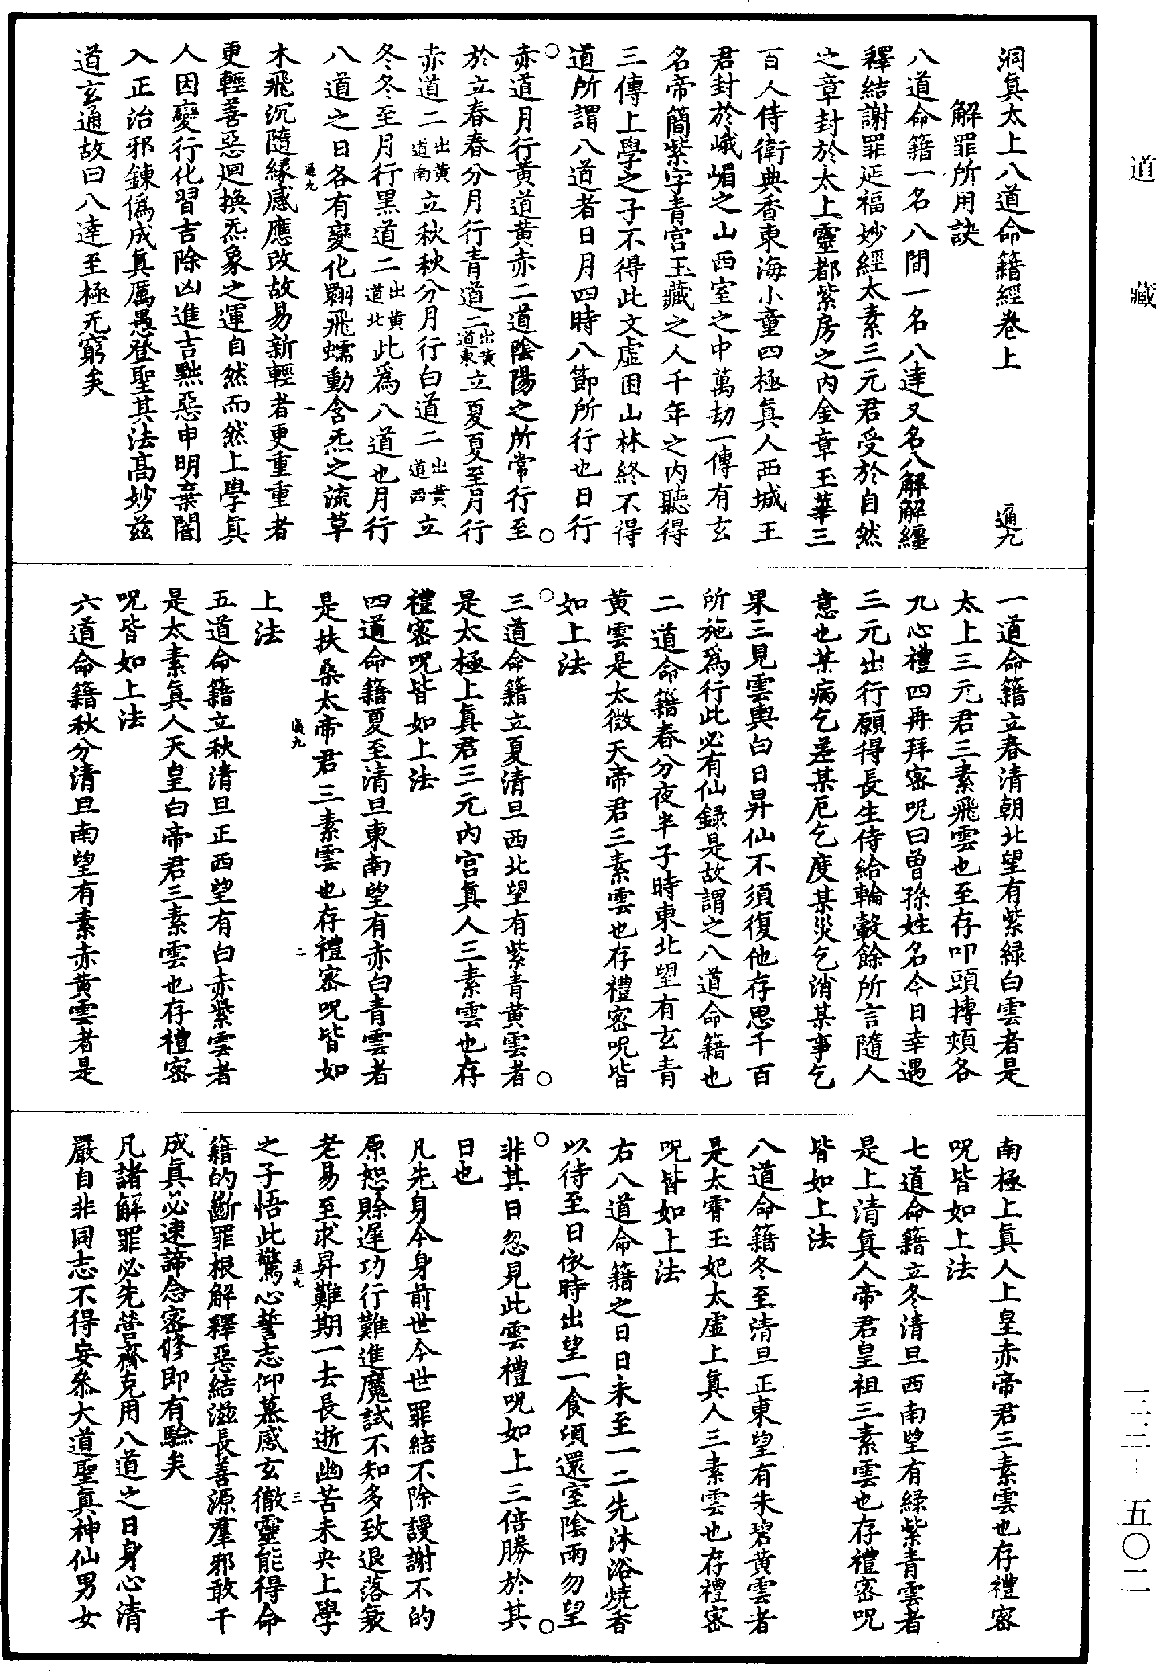 道藏
三三-五〇二
洞真太上八道命籍經卷上 通九
解罪所用訣
八道命籍一名八間一名八達又名八解解纏
釋結謝罪延福妙經太素三元君受於自然
之章封於太上靈都紫房之內金章玉華三
百人侍衛典香東海小童四極真人西城王
君封於峨嵋之山西室之中萬劫一傳有玄
名帝簡紫字青宮玉藏之人千年之內聽得
三傳上學之子不得此文虛困山林終不得
道所謂八道者日月四時八節所行也日行
赤道月行黃道黃赤二道陰陽之所常行至
於立春春分月行青道二出黃道東立夏夏至月行
赤道二出黃道南立秋秋分月行白道二出黃道西立
冬冬至月行黑道二出黃道北此為八道也月行
八道之日各有變化翾飛蠕動含炁之流草
通九 一
木飛沉隨緣感應改故易新輕者更重重者
更輕善惡迴換炁象之運自然而然上學真
人因變行化習吉除凶進吉黜惡申明棄闇
入正治邪鍊偽成真厲愚登聖其法高妙茲
道玄通故曰八達至極无窮矣
一道命籍立春清朝北望有紫綠白雲者是
太上三元君三素飛雲也至存叩頭搏頰各
九心禮四再拜密呪曰曾孫姓名今日幸遇
三元出行願得長生侍給輪轂餘所言隨人
意也某病乞差某厄乞度某災乞消某事乞
果三見雲輿白日昇仙不須復他存思千百
所施為行此必有仙錄是故謂之八道命籍也
二道命籍春分夜半子時東北望有玄青
黃雲是太微天帝君三素雲也存禮密呪皆
如上法
三道命籍立夏清旦西北望有紫青黃雲者
是太極上真君三元內宮真人三素雲也存
禮密呪皆如上法
四道命籍夏至清旦東南望有赤白青雲者
是扶桑太帝君三素雲也存禮密呪皆如
通九 二
上法
五道命籍立秋清旦正西望有白赤紫雲者
是太素真人天皇白帝君三素雲也存禮密
呪皆如上法
六道命籍秋分清旦南望有素赤黃雲者是
南極上真人上皇赤帝君三素雲也存禮密
呪皆如上法
七道命籍立冬清旦西南望有綠紫青雲者
是上清真人帝君皇祖三素雲也存禮密呪
皆如上法
八道命籍冬至清旦正東望有朱碧黃雲者
是太霄玉妃太虛上真人三素雲也存禮密
呪皆如上法
右八道命籍之日日未至一二先沐浴燒香
以待至日依時出望一食頃還室陰雨勿望
非其日忽見此雲禮呪如上三倍勝於其
日也
凡先身今身前世今世罪結不除謾謝不的
原恕賒遲功行難進魔試不知多致退落衰
老易至求昇難期一去長逝幽苦未央上學
通九 三
之子悟此驚心誓志仰慕感玄徹靈能得命
籍的斷罪根解釋惡結滋長善源羣邪敢干
成真必速諦念密修即有驗矣
凡諸解罪必先營齋克用八道之日身心清
嚴自非同志不得妄參大道聖真神仙男女